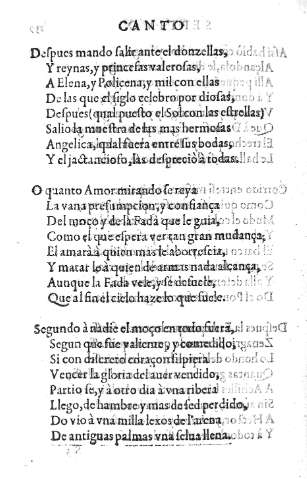 CANTO
Despues mando salir ante el donzellas,
Y reynas, y princesas valerosas,
A Elena, y Policena, y mil con ellas
De las que el siglo celebro por diosas,
Despues (qual puesto el Sol con las estrellas)
Salio la muestra de las mas hermosas
Angelica, qual fuera entre sus bodas,
Y el jactancioso, las despreciò à todas.
O quanto Amor mirando se reya
La vana presumpcion, y confiança
Del moço y de la Fada que le guia,
Como el que espera ver tan gran mudança,
El amarà à quien mas le aborrescia,
Y matar lo à quien de armas nada alcança,
Aunque la Fada vele, y se desuele,
Que al fin el cielo haze lo que suele.
Segundo à nadie el moço en todo fuera,
Segun que fue valiente, y comedido,
Si con discreto coraçon supiera
Vencer la gloria del auer vencido,
Partio se, y à otro dia à vna ribera
Llego, de hambre y mas de sed perdido,
Do vio à vna milla lexos de l'arena
De antiguas palmas vna selua llena.